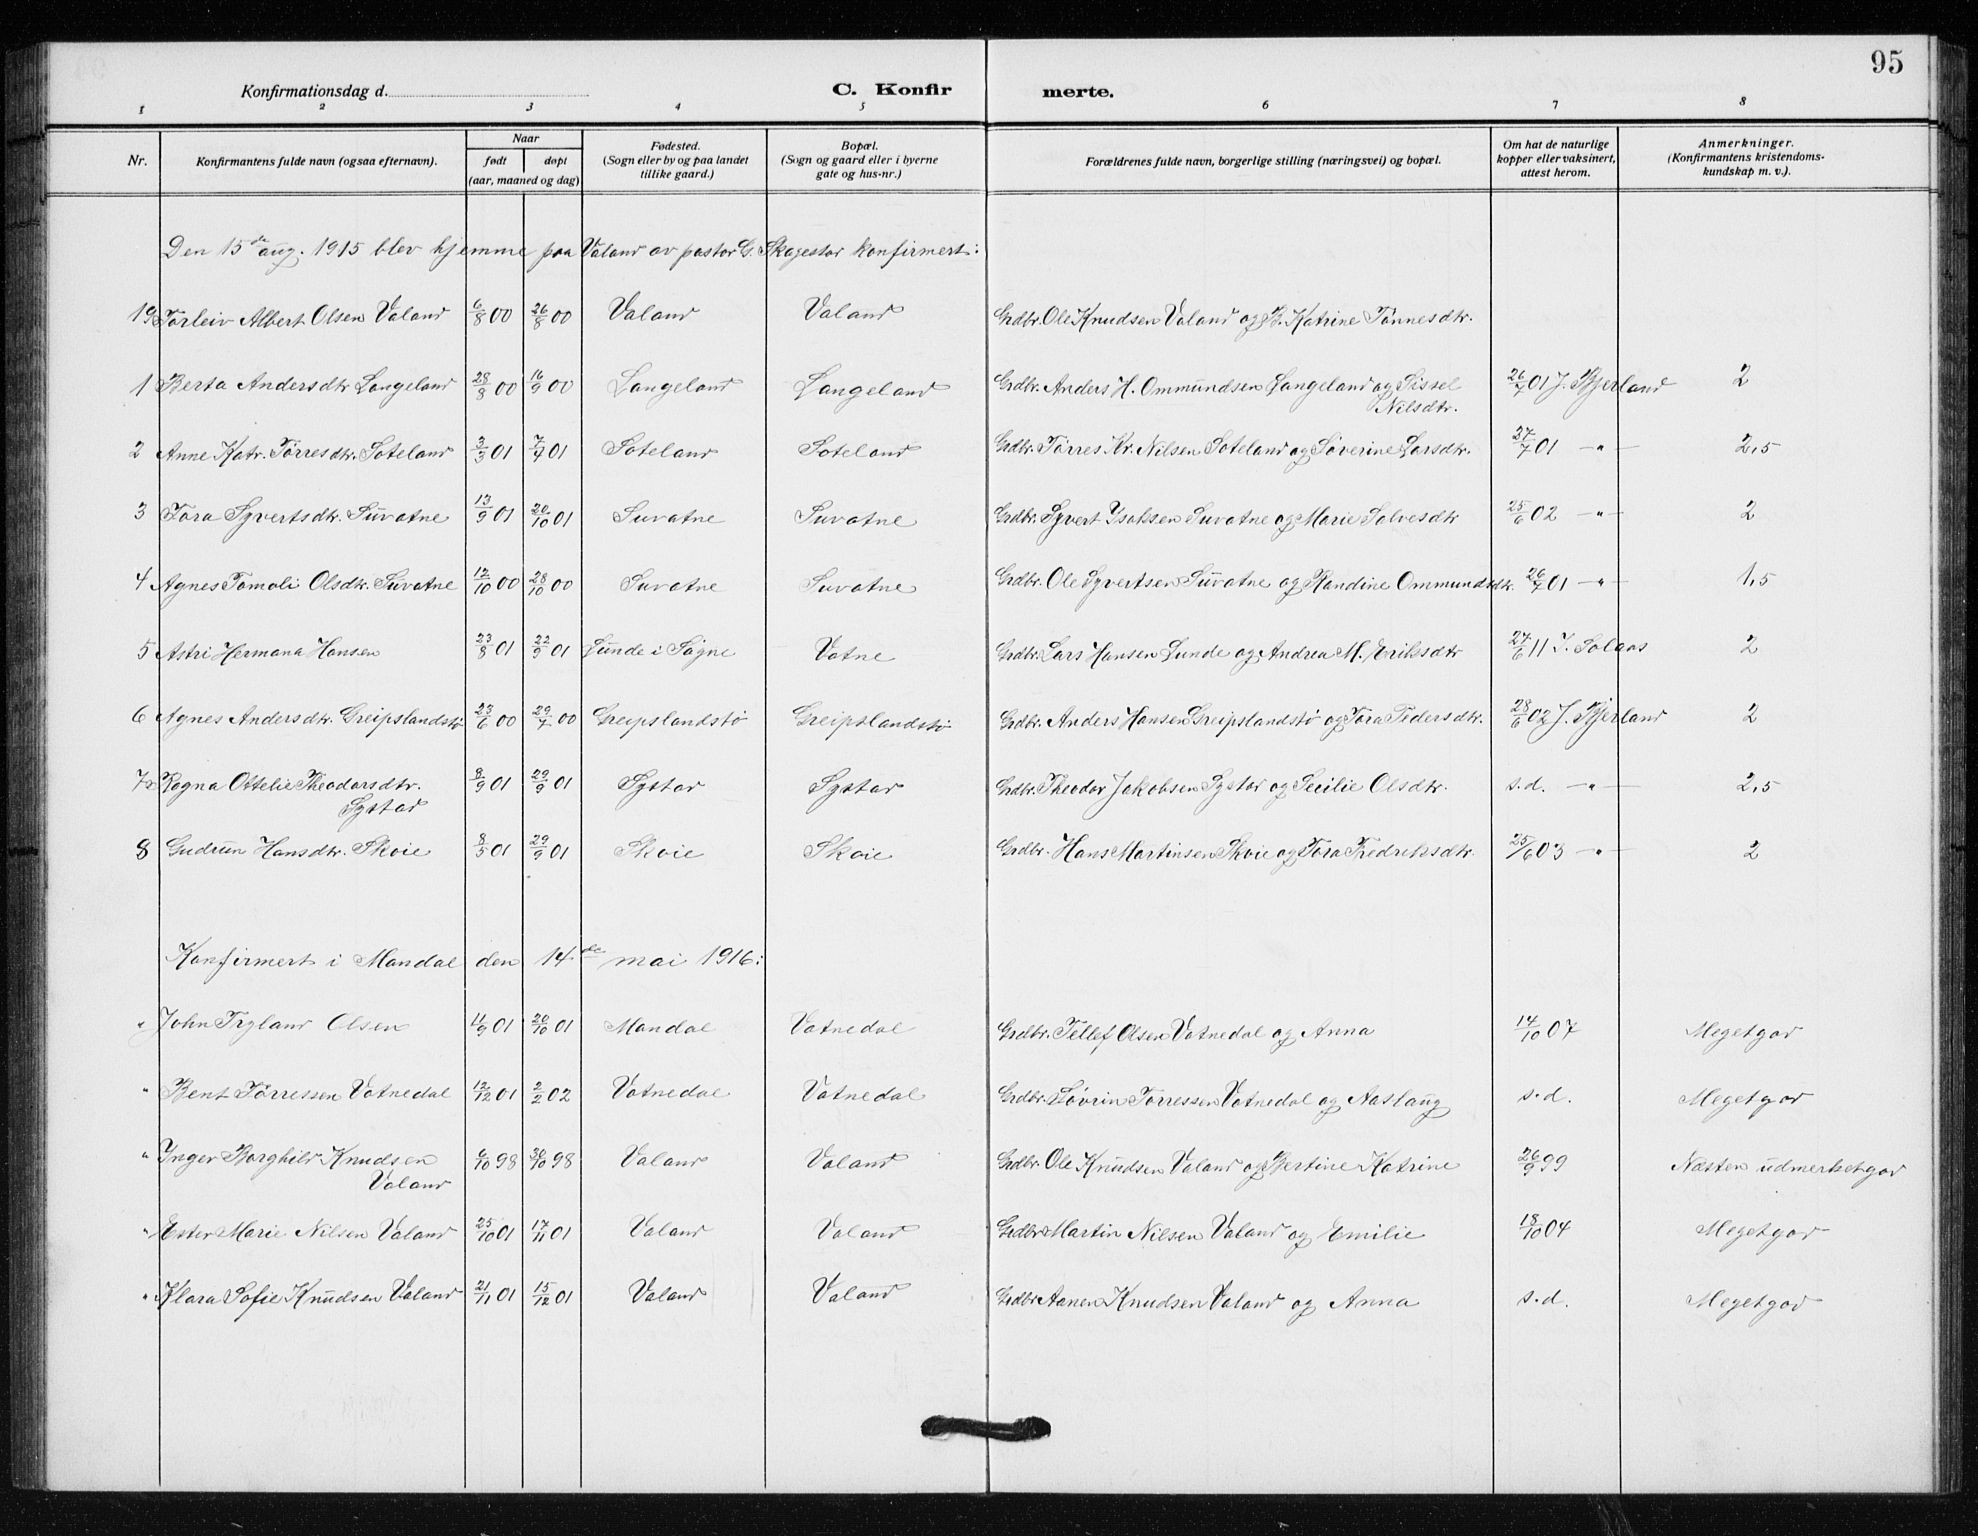 95
Konfirmationsdag d.
C. Konfir merte.
1 2 3 4 5 6 7 8
Nr. Konfirmantens fulde navn (ogsaa efternavn). Naar født døpt (aar, maaned og dag) Fødested. (Sogn eller by og paa landet tillike gaard.) Bopæl. (Sogn og gaard eller i byerne gate og hus-nr.) Forældrenes fulde navn, borgerlige stilling (næringsvei) og bopæl. Om hat de naturlige kopper eller vaksinert, attest herom. Anmerkninger. (Konfirmantens kristendoms-kundskap m. v.).
Den 15de aug. 1915 blev hjemme paa Valand av pastor G. Skagestad konfirmert:
19 Torleiv Albert Olsen Valand 6/8 00 26/8 00 Valand Valand Grdbr. Ole Knudsen Valand og B. Katrine Tønnesdtr.
1 Berta Andersdtr Langeland 28/8 00 16/9 00 Langeland Langeland Grdbr. Anders H. Ommundsen Langeland og Sissel Nilsdtr. 26/7 01 J. Bjerland 2
2 Anne Katr. Tørresdtr. Soteland 3/3 01 7/4 01 Soteland Soteland Grdbr. Tørres Kr. Nilsen Soteland og Søverine Larsdtr. 27/7 01 — " — 2,5
3 Tora Syvertsdtr. Suvatne 13/9 01 20/10 01 Suvatne Suvatne Grdbr. Syvert Ysaksen Suvatne og Marie Salvesdtr 25/6 02 — " — 2
4 Agnes Tomali Olsdtr. Suvatne 12/10 00 28/10 00 Suvatne Suvatne Grdbr. Ole Syvertsen Suvatne og Randine Ommundsdtr. 26/7 01 — " — 1,5
5 Astri Hermana Hansen 23/8 01 22/9 01 Lunde i Søgne Vatne Grdbr. Lars Hansen Lunde og Andrea M. Eriksdtr 27/6 11 T. Solaas 2
6 Agnes Andersdtr. Greipslandstø 23/6 00 29/7 00 Greipslandstø Greipslandstø Grdbr. Anders Hansen Greipslandstø og Tora Pedersdtr. 28/6 02 J. Bjerland 2
7 Ragna Ottelie Theodorsdtr. Systad 8/9 01 29/9 01 Systad Systad Grdbr. Theodor Jakobsen Systad og Secilie Olsdtr. s.d. — " — 2,5
8 Gudrun Hansdtr. Skoie 8/5 01 29/9 01 Skoie Skoie Grdbr. Hans Martinsen Skoie og Tora Fredriksdtr. 25/6 03 — " — 2
Konfirmert i Mandal den 14de mai 1916:
" John Tryland Olsen 11/9 01 20/10 01 Mandal Vatnedal Grdbr. Tellef Olsen Vatnedal og Anna 14/10 07 Meget god
" Bent Tørressen Vatnedal 12/12 01 2/2 02 Vatnedal Vatnedal Grdbr. Søvrin Tørressen Vatnedal og Aaslaug s.d. Meget god
" Inger Borghild Knudsen Valand 6/10 98 30/10 98 Valand Valand Grdbr. Ole Knudsen Valand og Bertine Katrine 26/9 99 Næsten udmerket god
" Ester Marie Nilsen Valand 25/10 01 17/11 01 Valand Valand Grdbr Martin Nilsen Valand og Emilie 18/10 04 Meget god
" Klara Sofie Knudsen Valand 21/11 01 15/12 01 Valand Valand Grdbr Aanen Knudsen Valand og Anna s.d. Meget god